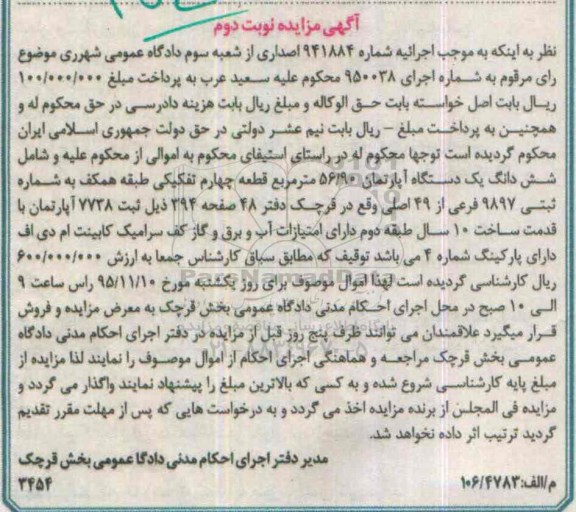 آگهی مزایده نوبت دوم
نظر به اینکه به موجب اجرائیه شماره ۹۴۱۸۸۴ اصداری از شعبه سوم دادگاه عمومی شهرری موضوع
رای مرقوم به شماره اجرای ۹۵۰۰۳۸ محکوم علیه سعید عرب به پرداخت مبلغ ۱۰۰/۰۰۰/۰۰۰
ریال بابت اصل خواسته بابت حق الوکاله و مبلغ ریال بابت هزینه دادرسی در حق محکوم له و
همچنین به پرداخت مبلغ – ریال بابت نیم عشر دولتی در حق دولت جمهوری اسلامی ایران
محکوم گردیده است توجها محکوم له در راستای استیفای محکوم به اموالی از محکوم علیه و شامل
شش دانگ یک دستگاه آپارتمان ۵۶/۹۰ مترمربع قطعه چهارم تفکیکی طبقه همکف به شماره
ثبتی ۹۸۹۷ فرعی از ۴۹ اصلی وقع در قرچک دفتر ۴۸ صفحه ۳۹۴ ذیل ثبت ۷۷۳۸ آپارتمان با
قدمت ساخت ۱۰ سال طبقه دوم دارای امتیازات آب و برق و گاز کف سرامیک کابینت ام دی اف
دارای پارکینگ شماره ۴ می باشد توقیف که مطابق سیاق کارشناس جمعا به ارزش ۶۰۰/۰۰۰/۰۰۰
ریال کارشناسی گردیده است لهذا اموال موصوف برای روز یکشنبه مورخ ۹۵/۱۱/۱۰ راس ساعت ۹
الی ۱۰ صبح در محل اجرای احکام مدنی دادگاه عمومی بخش قرچک به معرض مزایده و فروش
قرار میگیرد علاقمندان می توانند ظرف پنج روز قبل از مزایده در دفتر اجرای احکام مدنی دادگاه
عمومی بخش قرچک مراجعه و هماهنگی اجرای احکام از اموال موصوف را نمایند لذا مزایده از
مبلغ پایه کارشناسی شروع شده و به کسی که بالاترین مبلغ را پیشنهاد نمایند واگذار می گردد و
مزایده فی المجلس از برنده مزایده اخذ می گردد و به درخواست هایی که پس از مهلت مقرر تقدیم
گردید ترتیب اثر داده نخواهد شد.
مدیر دفتر اجرای احکام مدنی دادگا عمومی بخش قرچک
م/الف:۱۰۶/۴۷۸۳ ۳۴۵۴
ParsNamadData